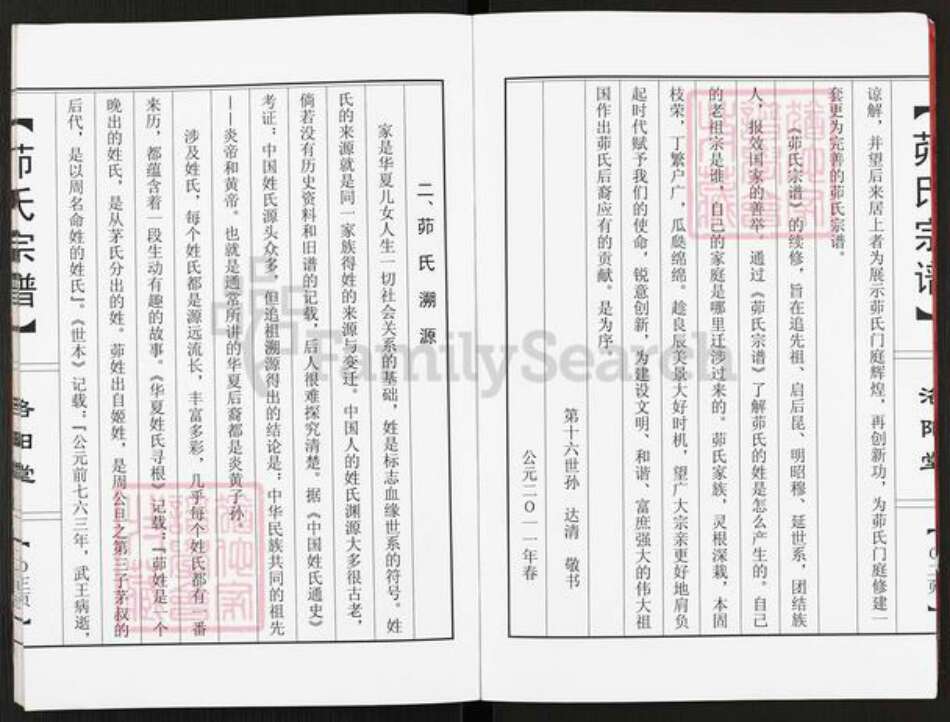 【茆氏宗谱】
洛阳堂
谅解，并望后来居上者为展示茆氏门庭辉煌，再创新功，为茆氏门庭修建一
套更为完善的茆氏宗谱。
《茆氏宗谱》的续修，旨在追先祖、启后昆、明昭穆、延世系，团结族
人，报效国家的善举，通过《茆氏宗谱》了解茆氏的姓是怎么产生的。自己
的老祖宗是谁，自己的家庭是哪里迁涉过来的。茆氏家族，灵根深栽，本固
枝荣，丁繁户广，瓜瓞绵绵。趁良辰美景大好时机，望广大宗亲更好地肩负
起时代赋予我们的使命，锐意创新，为建设文明、和谐、富庶强大的伟大祖
国作出茆氏后裔应有的贡献。是为序。
第十六世孙　达清　敬书
公元二〇一一年春
二、茆氏溯源
家是华夏儿女人生一切社会关系的基础，姓是标志血缘世系的符号。姓
氏的来源就是同一家族得姓的来源与变迁。中国人的姓氏渊源大多很古老，
倘若没有历史资料和旧谱的记载，后人很难探究清楚。据《中国姓氏通史》
考证：中国姓氏源头众多，但追祖溯源得出的结论是：中华民族共同的祖先
——炎帝和黄帝。也就是通常所讲的华夏后裔都是炎黄子孙。
涉及姓氏，每个姓氏都是源远流长，丰富多彩，几乎每个姓氏都有一番
来历，都蕴含着一段生动有趣的故事。《华夏姓氏寻根》记载：『茆姓是一个
晚出的姓氏，是从茅氏分出的姓。茆姓出自姬姓，是周公旦之第三子茅叔的
后代，是以周名命姓的姓氏』。《世本》记载：『公元前七六三年，武王病逝，
【茆氏宗谱】
洛阳堂
FamilySearch